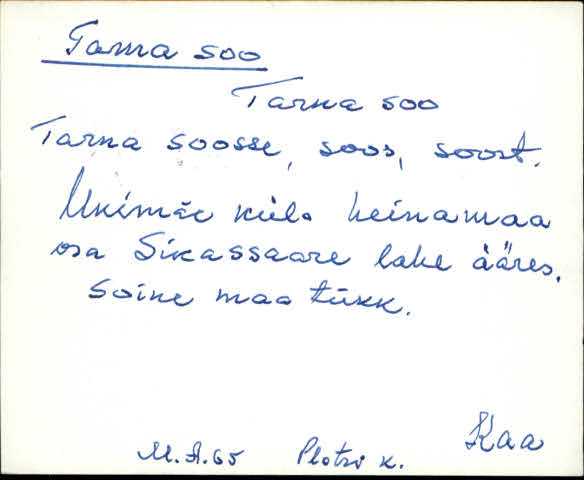 Tarna soo
Tarna soo
Tarna soosse, soos, soost.
Unimäe küla heinamaa
osa Sikassaare lahe ääres.
Soine maa tükk.
Kaa
M.A.65 Plotsi k.